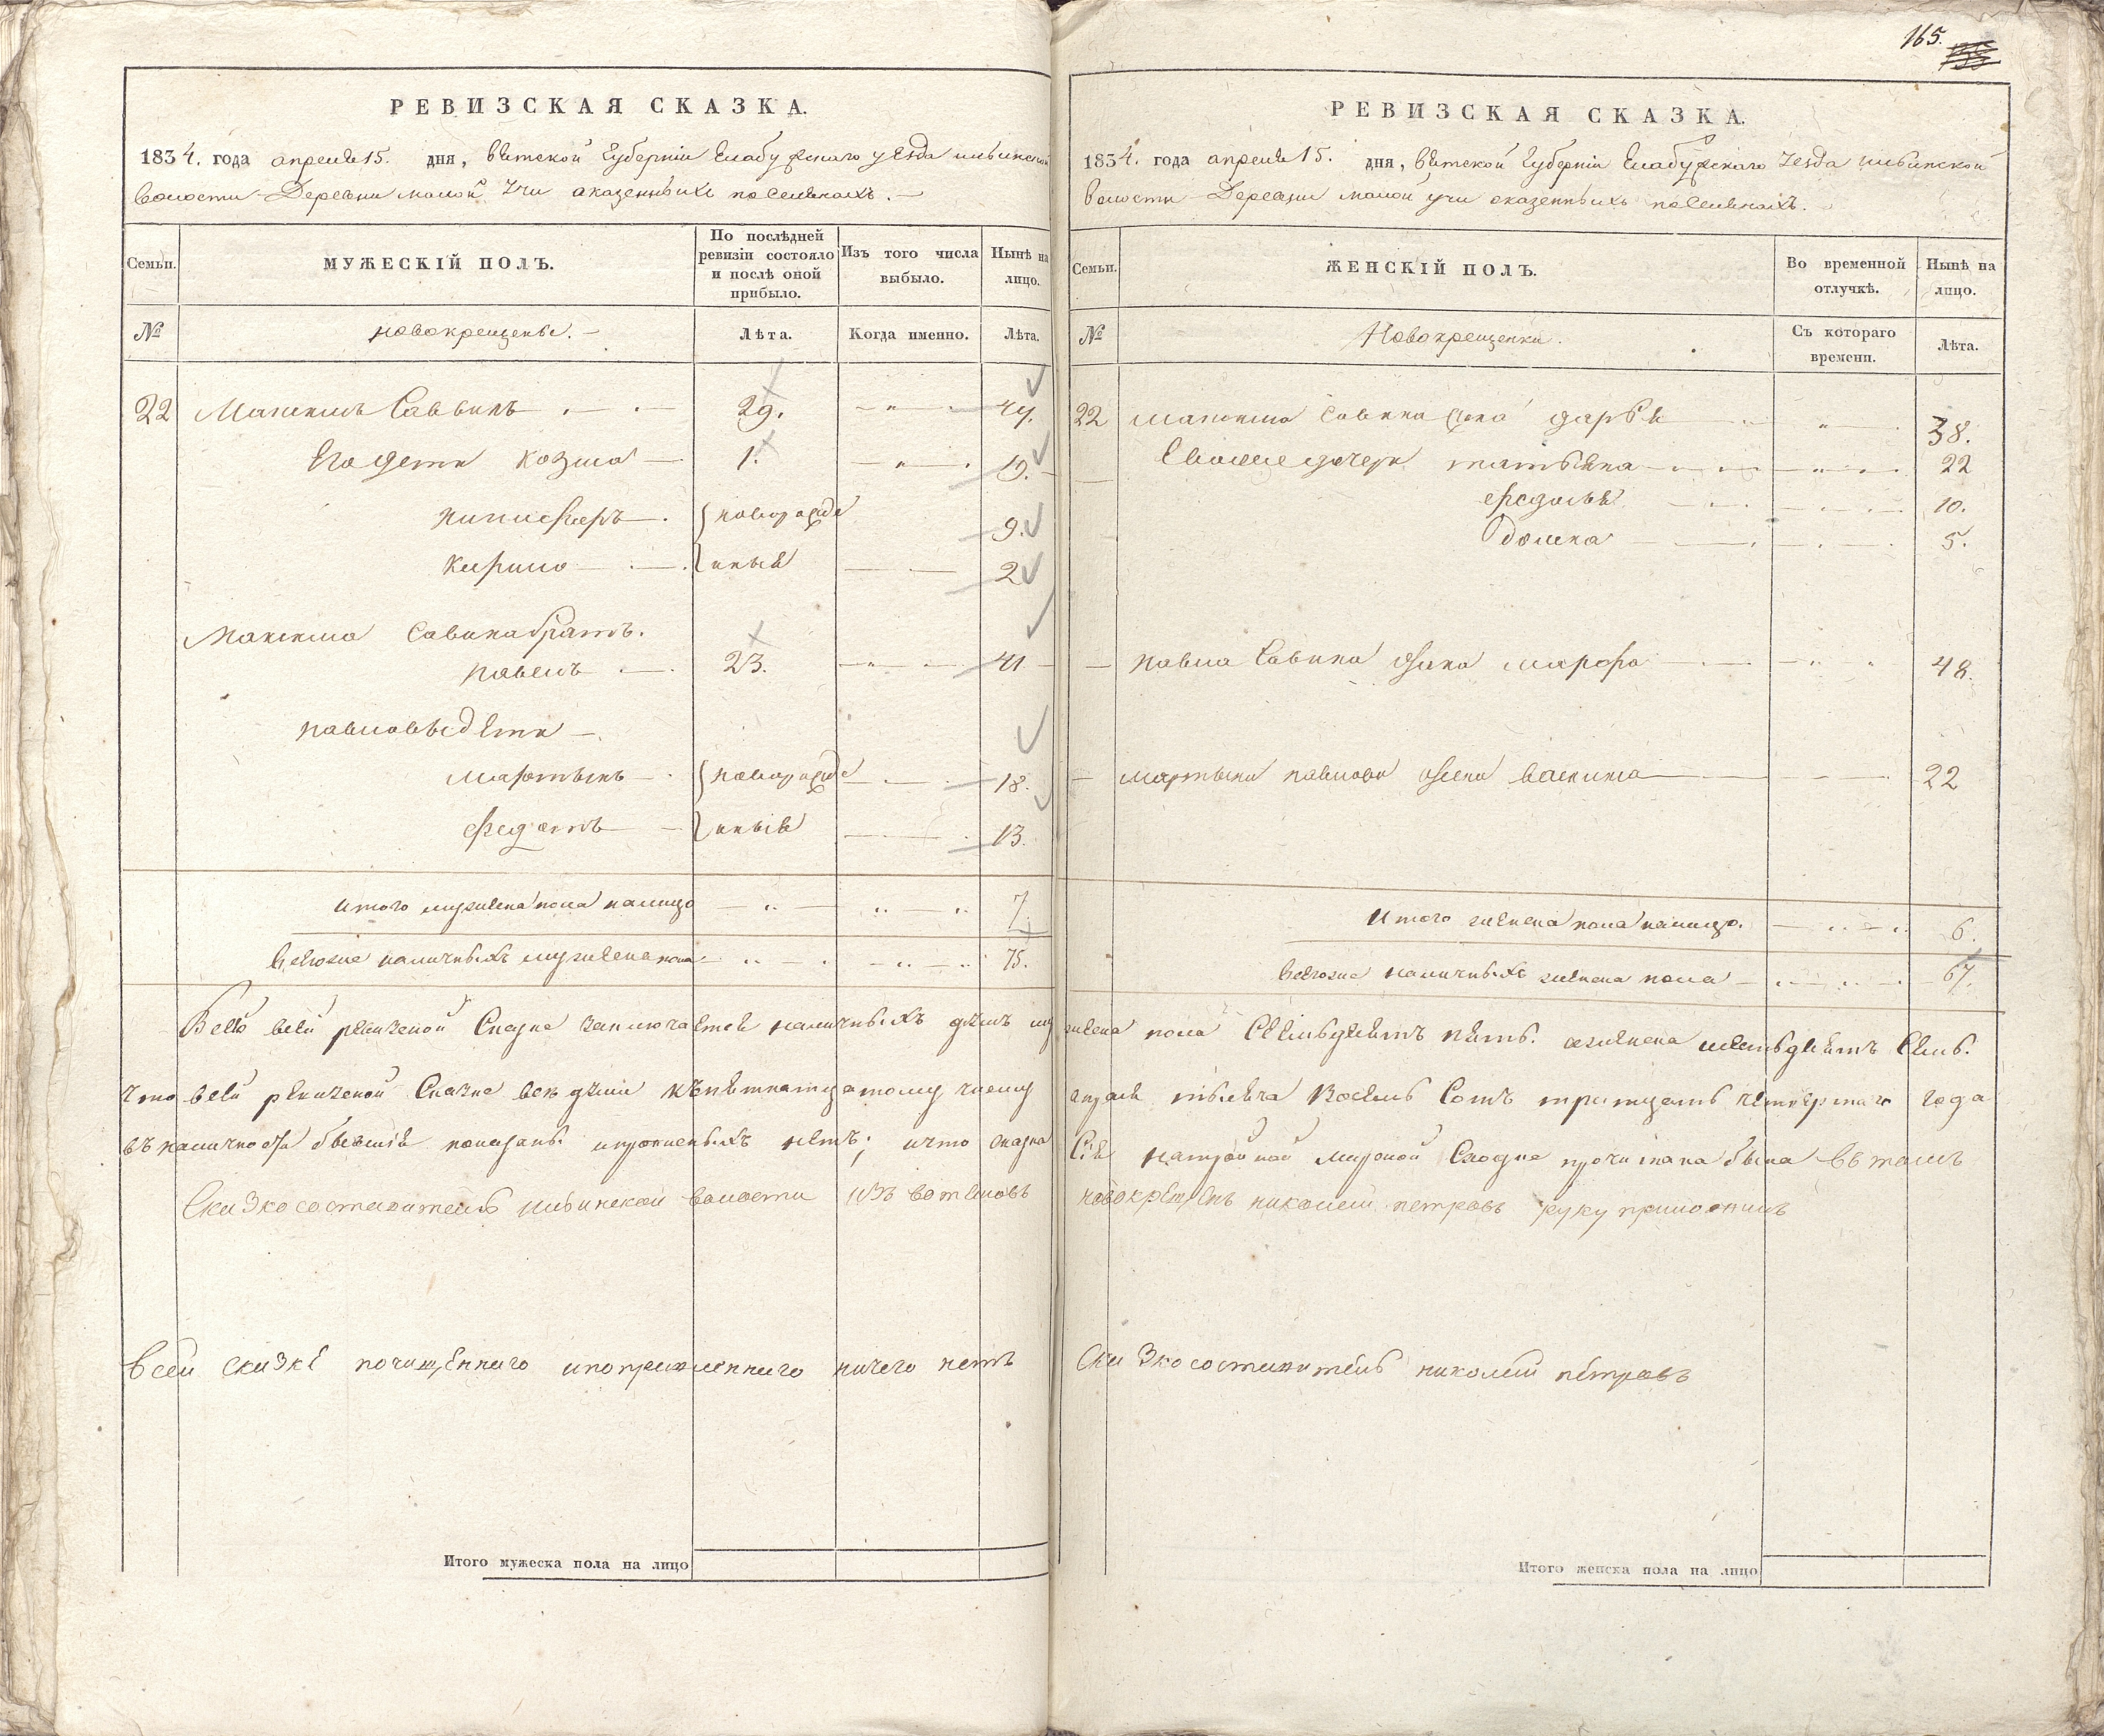 165.
РЕВИЗСКАЯ СКАЗКА.
1834. года апреля 15. дня, вятской Губерніи Елабужскаго уезда
волости Деревни малой Учи оказенныхъ поселянахъ.
Семьи.
МУЖЕСКІЙ ПОЛЪ.
По послѣдней ревизіи состояло и послѣ оной прибыло.
Изъ того числа выбыло.
Нынѣ на лицо.
№
новокрещены.
Лѣта.
Когда именно.
Лѣта.
22 Максимъ Саввинъ 29. 47.
Его дети козма 1. 19.
никифоръ новорожде 9.
кирило нныя 2
Максима Савина братъ.
павелъ 23. 41
павловы дети
мартынъ новорожде 18.
федотъ нныя 13.
итого мужеска пола налицо 7.
всехже наличныхъ мужеска пола 75.
РЕВИЗСКАЯ СКАЗКА.
1834. года апреля 15. дня, вятской Губерніи Елабужскаго Уезда
волости Деревни малой учи оказенныхъ поселянахъ.
Семьи.
ЖЕНСКІЙ ПОЛЪ.
Во временной отлучкѣ.
Нынѣ на лицо.
№
Новокрещенки.
Съ котораго времени.
Лѣта.
22 Максима Савина жена дарья 38.
дочери татьяна 22
федосья 10.
Домна 5.
павла Савина жена марфа 48.
мартына павлова жена 22
Итого женска пола налицо. 6.
всехже наличныхъ женска пола 67.
Всего всей ревиской Сказке заключается наличныхъ душъ мужеска пола Семьдесятъ пять. аженска шестьдесятъ Семь.
что всей ревиской Сказке все души къ пятнатцатому числу апреля тысяча Восемь Сотъ тритцать четвертаго года
въ наличности бывшія показаны и прописныхъ нетъ; ичто сказка Сія на мирской Сходке прочитана была въ томъ
Сказкосоставитель волости изъ вотяковъ новокрещенъ николай петровъ руку приложилъ
всей сказке почищеннаго ипоправленнаго ничего нетъ Сказкосоставитель николай петровъ
Итого мужеска пола на лицо
Итого женска пола на лицо